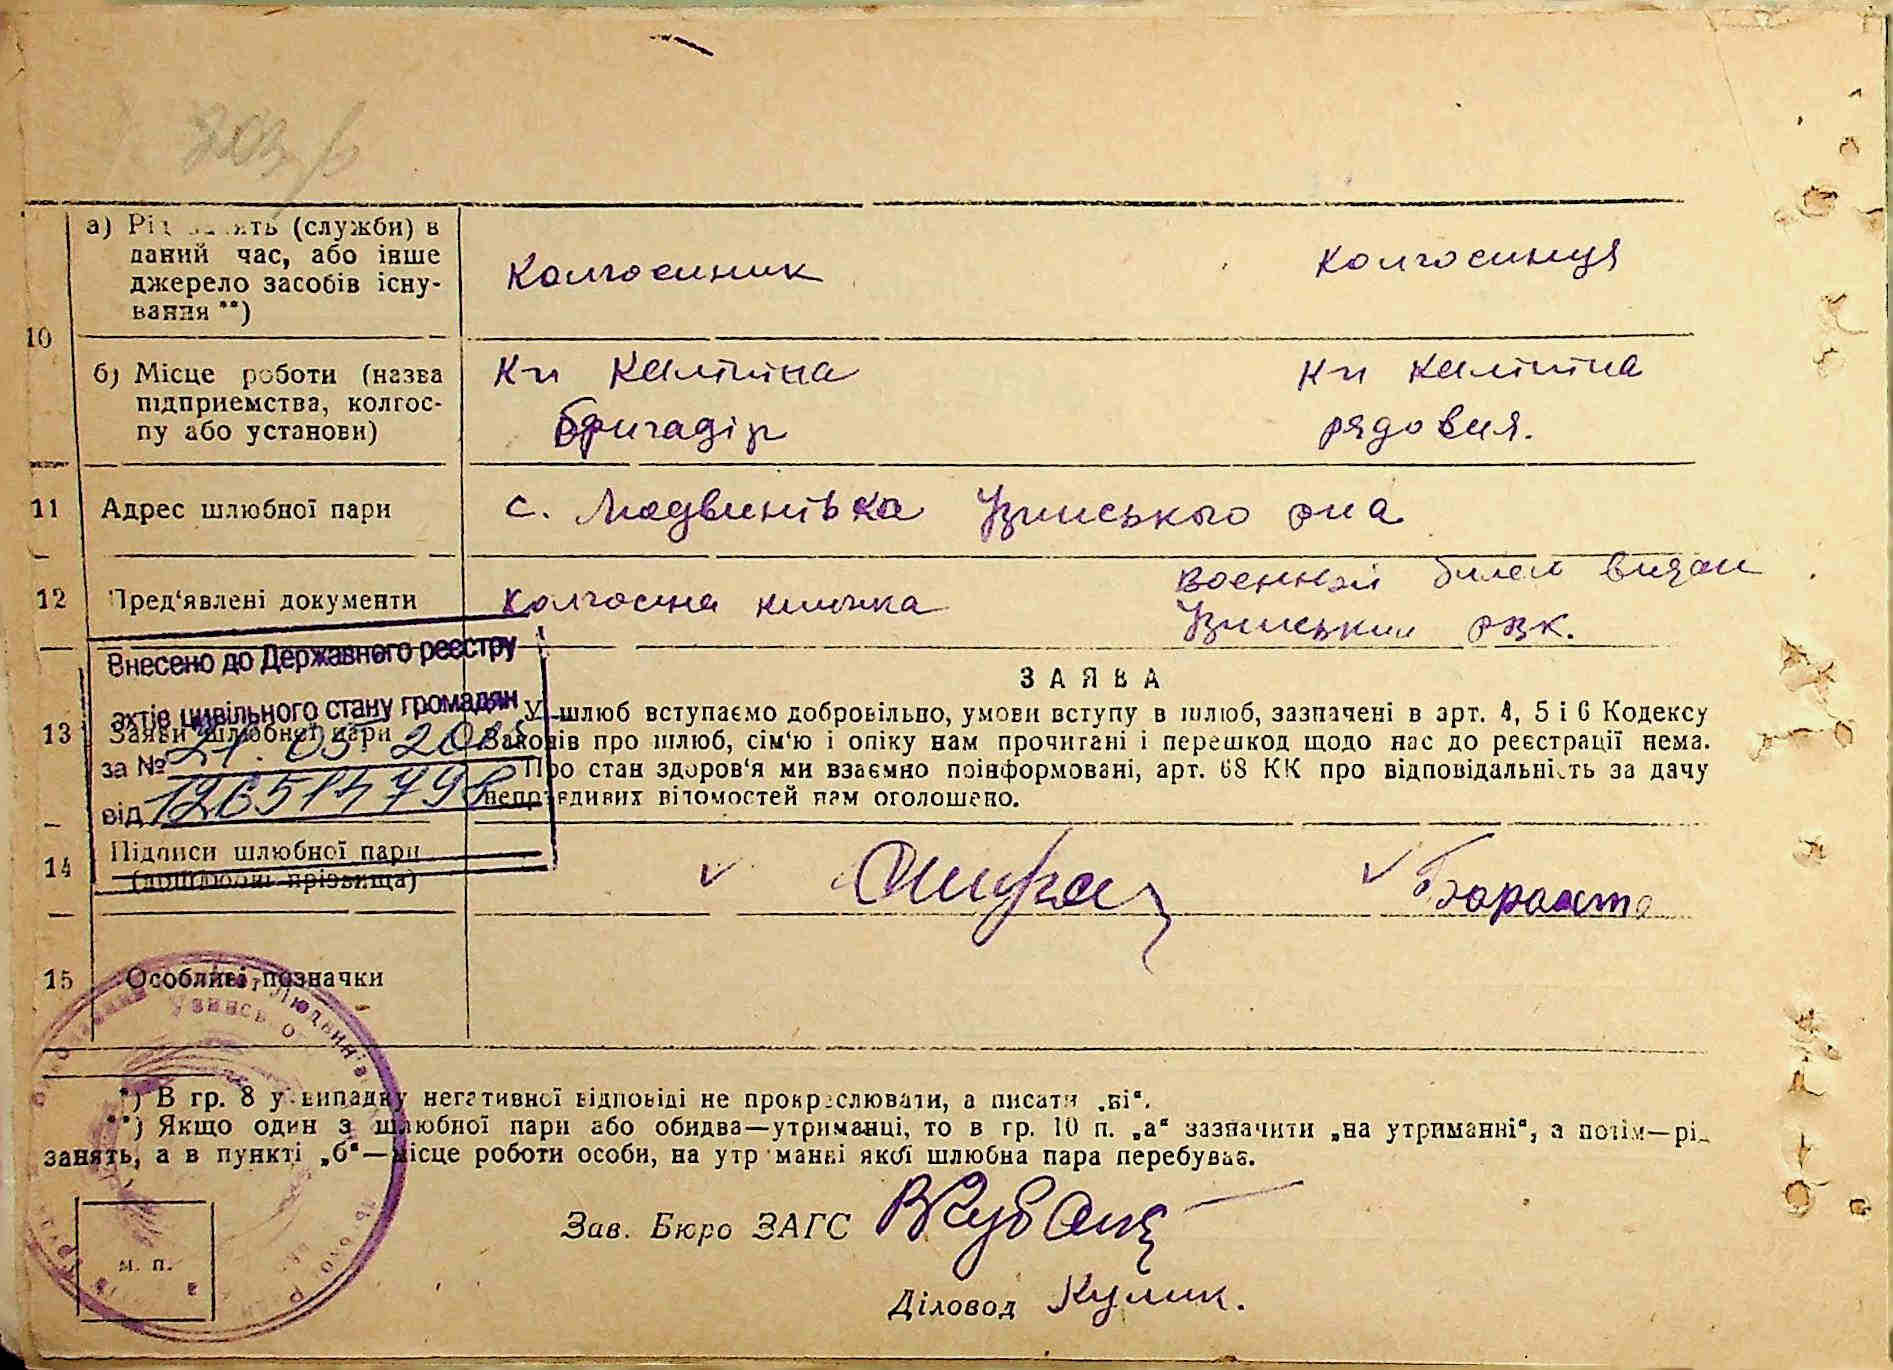 10
а) Рід занять (служби) в
даний час, або інше
джерело засобів існу-
вання **)
Колгоспник
Колгоспниця
б) Місце роботи (назва
підприємства, колгос-
пу або установи)
К-п Калініна
бригадір
К-п Калініна
рядовия.
11
Адрес шлюбної пари
с. Людвинівка Узинського р-на
12
Пред'явлені документи
Колгоспна книжка
Военний билет видан
Узинським рвк.
Внесено до Державного реєстру
актів цивільного стану громадян
за № 21.05.20
від
13
Заяви шлюбної пари
ЗАЯВА
У шлюб вступаємо добровільно, умови вступу в шлюб, зазначені в арт. 4, 5 і 6 Кодексу
Законів про шлюб, сім'ю і опіку нам прочитані і перешкод щодо нас до реєстрації нема.
Про стан здоров'я ми взаємно поінформовані, арт. 68 КК про відповідальність за дачу
неправдивих відомостей нам оголошено.
14
Підписи шлюбної пари
(дошлюбні прізвища)
15
Особливі позначки
*) В гр. 8 у випадку негативної відповіді не прокреслювати, а писати „ні“.
**) Якщо один з шлюбної пари або обидва—утриманці, то в гр. 10 п. „а“ зазначити „на утриманні“, а потім—рід
занять, а в пункті „б“—місце роботи особи, на утриманні якої шлюбна пара перебуває.
Зав. Бюро ЗАГС
Діловод Кулик.
м. п.